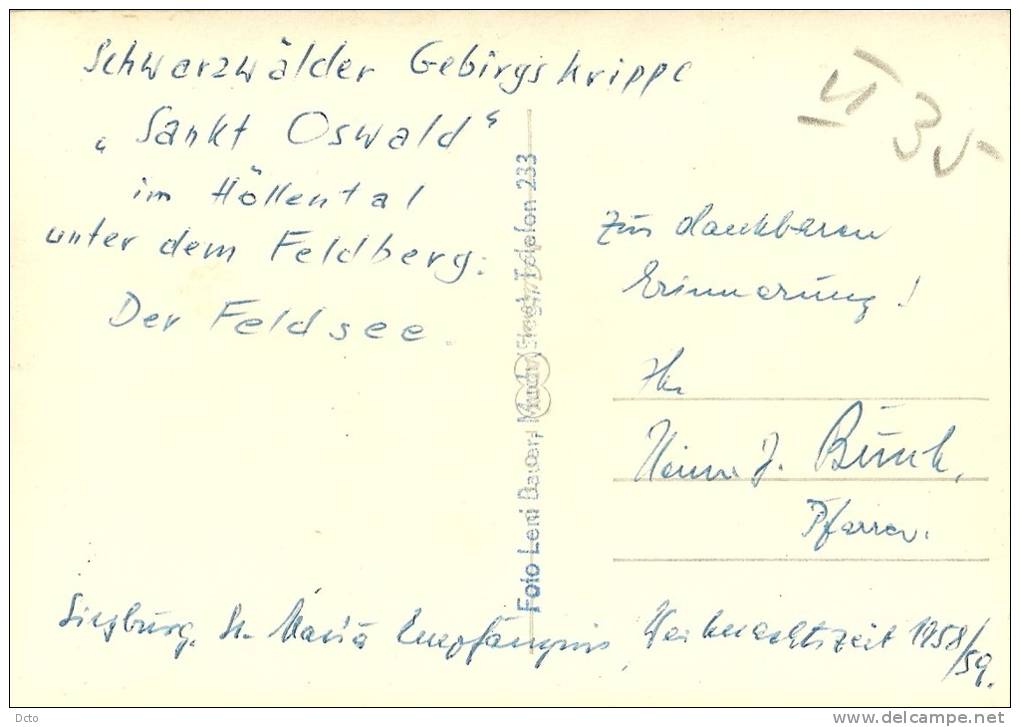 Schwarzwälder Gebirgskrippe
„Sankt Oswald“
im Höllental
unter dem Feldberg:
Der Feldsee.
VI 35
Foto Leni Bauer, Much/Siegk. Telefon 233
Zur dankbaren
Erinnerung!
Ihr
J. Bünk,
Pfarrer.
Siegburg, St. Mariä Empfängnis, Weihnachtszeit 1958/59.
Dcto
www.delcampe.net